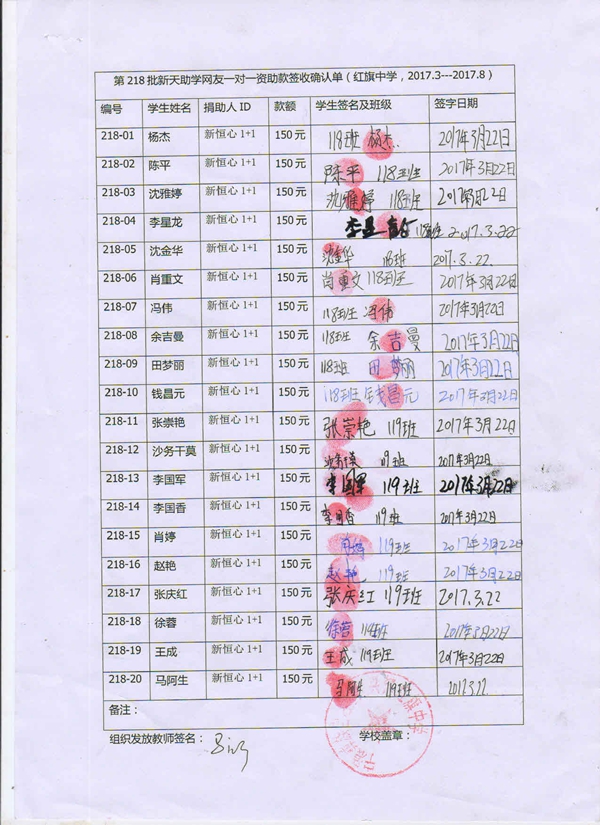 第 218 批新天助学网友一对一资助款签收确认单（红旗中学，2017.3---2017.8）
编号 学生姓名 捐助人 ID 款额 学生签名及班级 签字日期
218-01 杨杰 新恒心 1+1 150 元 118班 杨杰 2017年3月22日
218-02 陈平 新恒心 1+1 150 元 陈平 118班 2017年3月22日
218-03 沈雅婷 新恒心 1+1 150 元 沈雅婷 118班 2017年3月22日
218-04 李星龙 新恒心 1+1 150 元 李星龙 118班 2017.3.22
218-05 沈金华 新恒心 1+1 150 元 沈金华 118班 2017.3.22.
218-06 肖重文 新恒心 1+1 150 元 肖重文 118班 2017年3月22日
218-07 冯伟 新恒心 1+1 150 元 118班 冯伟 2017年3月22日
218-08 余吉曼 新恒心 1+1 150 元 118班 余吉曼 2017年3月22日
218-09 田梦丽 新恒心 1+1 150 元 118班 田梦丽 2017年3月22日
218-10 钱昌元 新恒心 1+1 150 元 118班 钱昌元 2017年3月22日
218-11 张崇艳 新恒心 1+1 150 元 张崇艳 119班 2017年3月22日
218-12 沙务干莫 新恒心 1+1 150 元 119班 2017年3月22日
218-13 李国军 新恒心 1+1 150 元 李国军 119班 2017年3月22日
218-14 李国香 新恒心 1+1 150 元 李国香 119班 2017年3月22日
218-15 肖婷 新恒心 1+1 150 元 肖婷 119班 2017年3月22日
218-16 赵艳 新恒心 1+1 150 元 赵艳 119班 2017年3月22日
218-17 张庆红 新恒心 1+1 150 元 张庆红 119班 2017.3.22
218-18 徐蓉 新恒心 1+1 150 元 徐蓉 119班 2017年3月22日
218-19 王成 新恒心 1+1 150 元 王成 119班 2017年3月22日
218-20 马阿生 新恒心 1+1 150 元 马阿生 119班 2017.3.22
备注：
组织发放教师签名： 学校盖章：